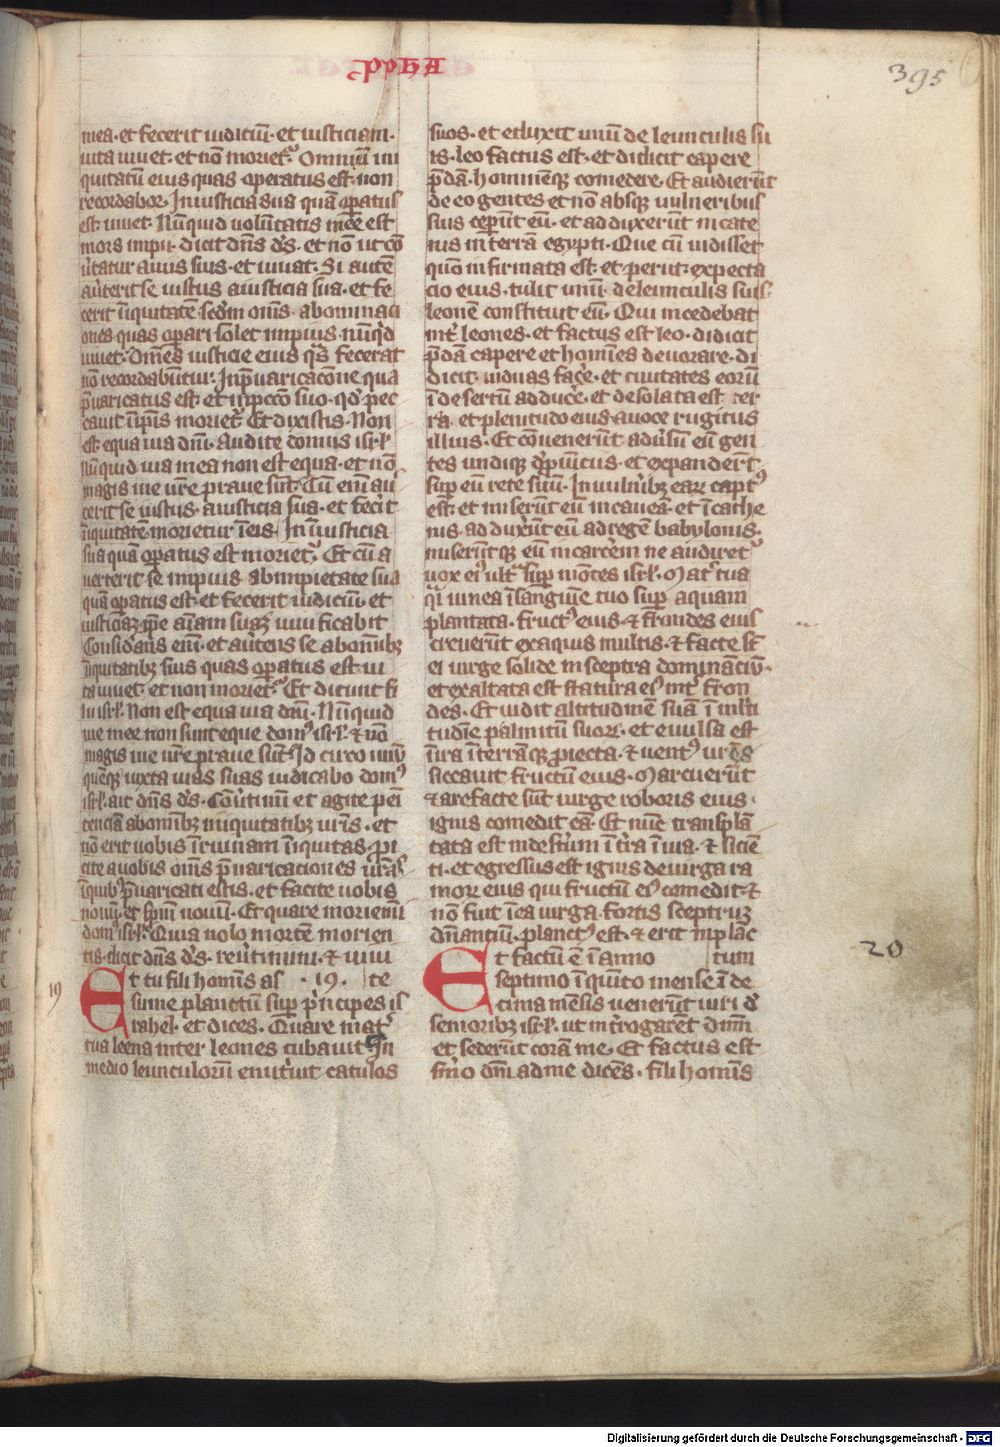 ppħA
395
mea. et fecerit iuditiū. et iusticiam.
uita uiuet. et nō moriet᷑. Omniū ini
quitatū eius quas operatus est. non
recordabor. In iusticia sua quā op̄atus
est. uiuet. Nūquid volūtatis mee est
mors impii. dicit dn̄s d̄s. et nō ut cō
ūtatur a uiis suis. et uiuat. Si autē
aūterit se iustus a iusticia sua. et fe
cerit īiquitatē scd̄m om̄s abominaci
ones quas op̄ari solet impius. nūqͥd
uiuet. Om̄es iusticie eius qͣs fecerat
nō recordabūtur. In p̄uaricacōne qua
p̄uaricatus est et in pccō suo. qd̓ pec
cauit ī ip̄is moriet᷑. Et dixistis. Non
est equa uia dn̄i. Audite domus isrl̓.
Nūquid uia mea non est equa. et nō
magis uie ur̄e praue sūt. Cū eni aū
terit se iustus. a iusticia sua. et fec̓it
īiquitatē. morietur ī eis. In īiusticia
sua quā op̄atus est moriet᷑. Et cū a
uerterit se impius ab impietate sua
quā op̄atus est. et fecerit iudiciū. et
iusticiaꝫ. ip̄e aīam suaꝫ uiuificabit
Considerans eni. et auertens se ab om̄ibꝫ
īiquitatibꝫ suis quas op̄atus est. ui
ta uiuet. et non moriet᷑. Et dicunt fi
lii isrl̓. Non est equa uia dn̄i. Nūquid
uie mee non sunt eque domꝰ isrl̓. & nō
magis uie ur̄e praue sūt. Id circo unū
quēqꝫ iuxta uias suas iudicabo domꝰ
isrl̓. ait dn̄s d̄s. Cōūtimini et agite peni
tenciā ab om̄ibꝫ iniquitatibꝫ ur̄is. et
nō erit uobis ī ruinam īiquitas. pi
cite a uobis om̄s p̄uaricaciones ur̄as.
ī quibꝰ p̄uaricati estis. et facite uobis
cor nouū. et spm̄ nouū. Et quare moriemī
domꝰ isrl̓. Quia nolo mortē morien
tis. dicit dn̄s d̄s. reūtimini. & uiuite
19
Et tu fili homīs as . 19. te
sume planctū sup̄ pͥncipes is
rahel. et dices. Quare matͬ
tua leena inter leones cubauit. In
medio leunculorū enutriuit catulos
suos. et eduxit unū de leunculis su
is. leo factus est. et didicit capere
p̄dā. hominēqꝫ comedere. Et audierūt
de eo gentes et nō absqꝫ uulneribus
suis ceperūt eū. et adduxerūt in cate
nis in terrā egypti. Que cū uidisset
quō infirmata est. et periit expecta
cio eius. tulit unū de leunculis suis.
leonē constituit eū. Qui incedebat
int̓ leones. et factus est leo. didicit
p̄dā capere et homīes deuorare. di
dicit uiduas fac̓e. et ciuitates eorū
ī desertū adduc̓e. et desolata est ter
ra. et plenitudo eius a uoce rugitus
illius. Et cōuenerūt adūsū eū gen
tes undiqꝫ de prouinciis. et expanderūt
sup̄ eū rete suū. In uulnibꝫ earꝫ captꝰ
est. et miserūt eū in caueā. et ī cathe
nis adduxerūt eū ad regē babylonis.
miserūtqꝫ eū in carc̓em ne audiret᷑
uox eiꝰ ultͣ sup̄ mōtes isrl̓. Matͬ tua
qͣi uinea ī sanguīe tuo sup̄ aquam
plantata. fructꝰ eius. & frondes eius
creuerūt ex aquis multis. & facte sūt
ei uirge solide in sceptra dominanciū.
et exaltata est statura eiꝰ int̓ fron
des. Et uidit altitudinē suā ī mlti
tudīe palmitū suorꝫ. et euulsa est
ī ira ī terrāqꝫ proiecta. & uentꝰ urēs
siccauit fructū eius. Marcuerūt
& arefacte sūt uirge roboris eius.
ignis comedit eā. Et nūc transplā
tata est in desertum ī t̓ra īuia. & sicien
ti. et egressus est ignis de uirga ra
morꝫ eius qui fructū eiꝰ comedit. &
nō fuit ī ea uirga fortis sceptrū
dn̄antiū. planctꝰ est. & erit in plāc
tum
Et factū ē ī anno
septimo ī quīto mense ī de
cima mēsis uenerūt uiri d̓
senioribꝫ isrl̓. ut int̓rogarēt dn̄m
et sederūt corā me. Et factus est
sermo dn̄i ad me dicēs. fili homīs
20
Digitalisierung gefördert durch die Deutsche Forschungsgemeinschaft - DFG